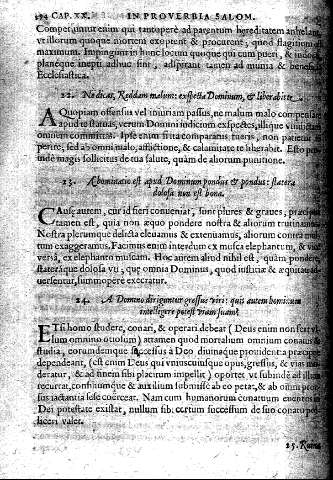 274 CAP. XX. IN PROVERBIA SALOM.
Comperiuntur enim qui tantopere ad parentum hereditatem anhelant,
vt illorum quoque mortem exoptent & procurent, quod flagitium est
maximum. Impingunt in hunc locum quoque qui cum pueri, & indocti
planéque inepti adhuc sint, adspirant tamen ad munia & beneficia
Ecclesiastica.
22. Ne dicas, Reddam malum: exspecta Dominum, & liberabit te.
A Quopiam offensus vel iniuriam passus, ne malum malo compensare
apud te statuas, verum Domini iudicium exspectes, illique vindictam
omnem committas. Ipse enim si ita comparatus fueris, non patietur te
perire, sed ab omni malo, afflictione, & calamitate te liberabit. Esto
indè magis sollicitus de tua salute, quàm de aliorum punitione.
23. Abominatio est apud Dominum pondus & pondus: statera
dolosa non est bona.
CAusæ autem, cur id fieri conueniat, sunt plures & graues,
tamen est, quia non æquo pondere nostra & aliorum trutinamus.
Nostra plerumque delicta eleuamus & extenuamus, aliorum contra
tum exaggeramus. Facimus enim interdum ex musca elephantum, &
versâ, ex elephanto muscam. Hoc autem aliud nihil est, quàm pondere,
stateráque dolosa vti, quæ omnia Dominus, quod iustitiæ & æquitati ad-
uersentur, summopere execratur.
24. A Domino diriguntur gressus viri: quis autem hominum
intelligere potest viam suam?
ETsi homo studere, conari, & operari debeat (Deus enim non fert
sum omnino otiosum) attamen quod mortalium omnium conatus &
studia, eorumdemque successus à Deo diuinaque prouidentia
dependeant, (est enim Deus qui vniuscuiusque opus, gressus, & vias
deratur, & ad finem sibi placitum impellit) oportet vt subinde ad illum
recurrat, consiliumque & auxilium submissè ab eo petat, & ab omni
sus iactantia sese coërceat. Nam cum humanorum conatuum euentus in
Dei potestate existat, nullum sibi certum successum de suo conatu
liceri valet.
25. Ruina